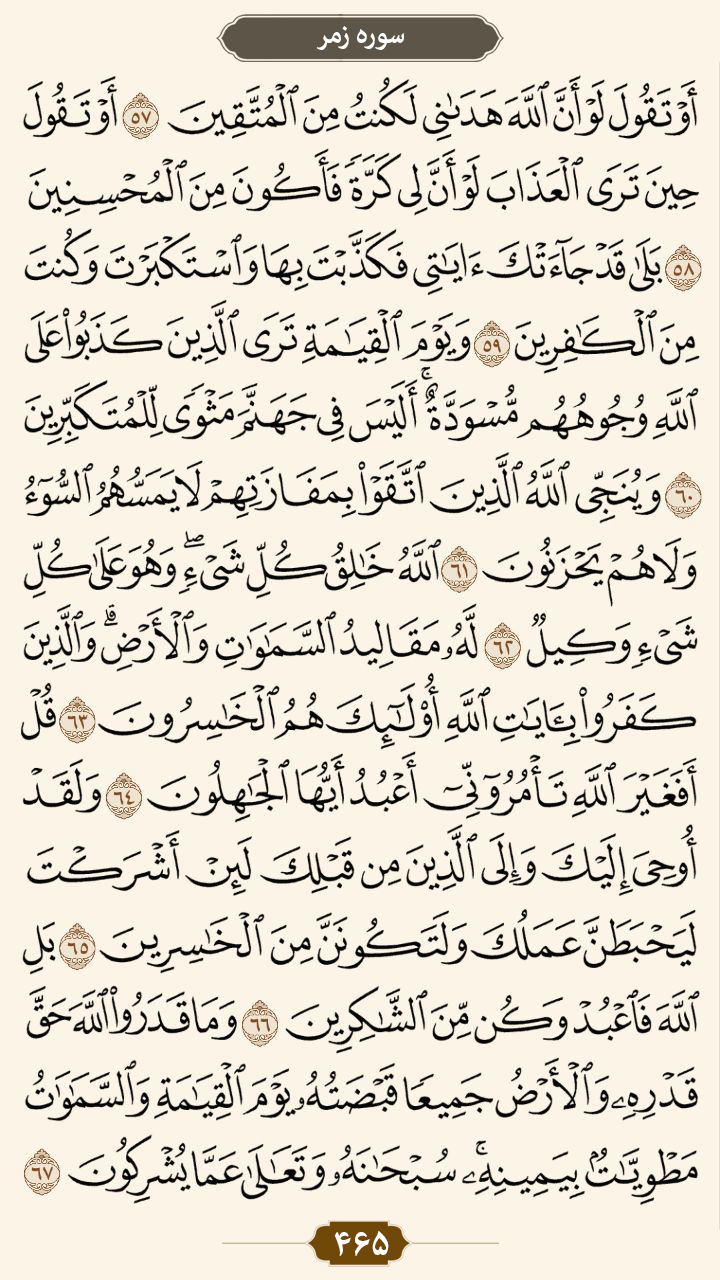 سوره زمر
أَوْ تَقُولَ لَوْ أَنَّ ٱللَّهَ هَدَىٰنِى لَكُنتُ مِنَ ٱلْمُتَّقِينَ ٥٧ أَوْ تَقُولَ
حِينَ تَرَى ٱلْعَذَابَ لَوْ أَنَّ لِى كَرَّةً فَأَكُونَ مِنَ ٱلْمُحْسِنِينَ
٥٨ بَلَىٰ قَدْ جَآءَتْكَ ءَايَٰتِى فَكَذَّبْتَ بِهَا وَٱسْتَكْبَرْتَ وَكُنتَ
مِنَ ٱلْكَٰفِرِينَ ٥٩ وَيَوْمَ ٱلْقِيَٰمَةِ تَرَى ٱلَّذِينَ كَذَبُوا۟ عَلَى
ٱللَّهِ وُجُوهُهُم مُّسْوَدَّةٌ ۚ أَلَيْسَ فِى جَهَنَّمَ مَثْوًى لِّلْمُتَكَبِّرِينَ
٦٠ وَيُنَجِّى ٱللَّهُ ٱلَّذِينَ ٱتَّقَوْا۟ بِمَفَازَتِهِمْ لَا يَمَسُّهُمُ ٱلسُّوٓءُ
وَلَا هُمْ يَحْزَنُونَ ٦١ ٱللَّهُ خَٰلِقُ كُلِّ شَىْءٍ ۖ وَهُوَ عَلَىٰ كُلِّ
شَىْءٍ وَكِيلٌ ٦٢ لَّهُۥ مَقَالِيدُ ٱلسَّمَٰوَٰتِ وَٱلْأَرْضِ ۗ وَٱلَّذِينَ
كَفَرُوا۟ بِـَٔايَٰتِ ٱللَّهِ أُو۟لَٰٓئِكَ هُمُ ٱلْخَٰسِرُونَ ٦٣ قُلْ
أَفَغَيْرَ ٱللَّهِ تَأْمُرُوٓنِّىٓ أَعْبُدُ أَيُّهَا ٱلْجَٰهِلُونَ ٦٤ وَلَقَدْ
أُوحِىَ إِلَيْكَ وَإِلَى ٱلَّذِينَ مِن قَبْلِكَ لَئِنْ أَشْرَكْتَ
لَيَحْبَطَنَّ عَمَلُكَ وَلَتَكُونَنَّ مِنَ ٱلْخَٰسِرِينَ ٦٥ بَلِ
ٱللَّهَ فَٱعْبُدْ وَكُن مِّنَ ٱلشَّٰكِرِينَ ٦٦ وَمَا قَدَرُوا۟ ٱللَّهَ حَقَّ
قَدْرِهِۦ وَٱلْأَرْضُ جَمِيعًا قَبْضَتُهُۥ يَوْمَ ٱلْقِيَٰمَةِ وَٱلسَّمَٰوَٰتُ
مَطْوِيَّٰتٌۢ بِيَمِينِهِۦ ۚ سُبْحَٰنَهُۥ وَتَعَٰلَىٰ عَمَّا يُشْرِكُونَ ٦٧
۴۶۵